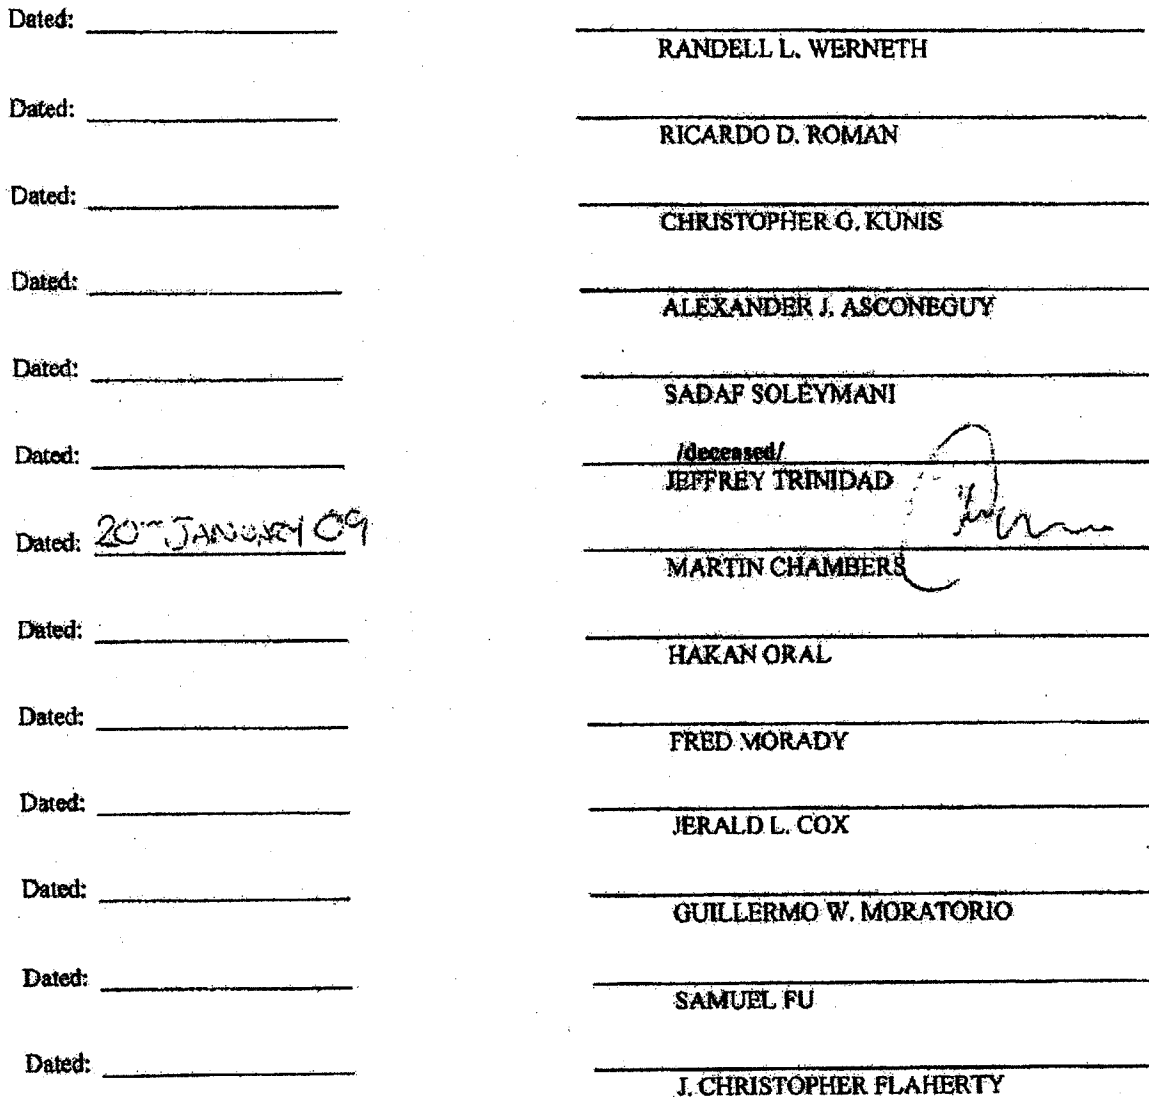 Dated:
RANDELL L. WERNETH
Dated:
RICARDO D. ROMAN
Dated:
CHRISTOPHER G. KUNIS
Dated:
ALEXANDER J. ASCONEGUY
Dated:
SADAF SOLEYMANI
Dated: /deceased/
JEFFREY TRINIDAD
Dated: 20TH JANUARY 09
MARTIN CHAMBERS
Dated:
HAKAN ORAL
Dated:
FRED MORADY
Dated:
JERALD L. COX
Dated:
GUILLERMO W. MORATORIO
Dated:
SAMUEL FU
Dated:
J. CHRISTOPHER FLAHERTY